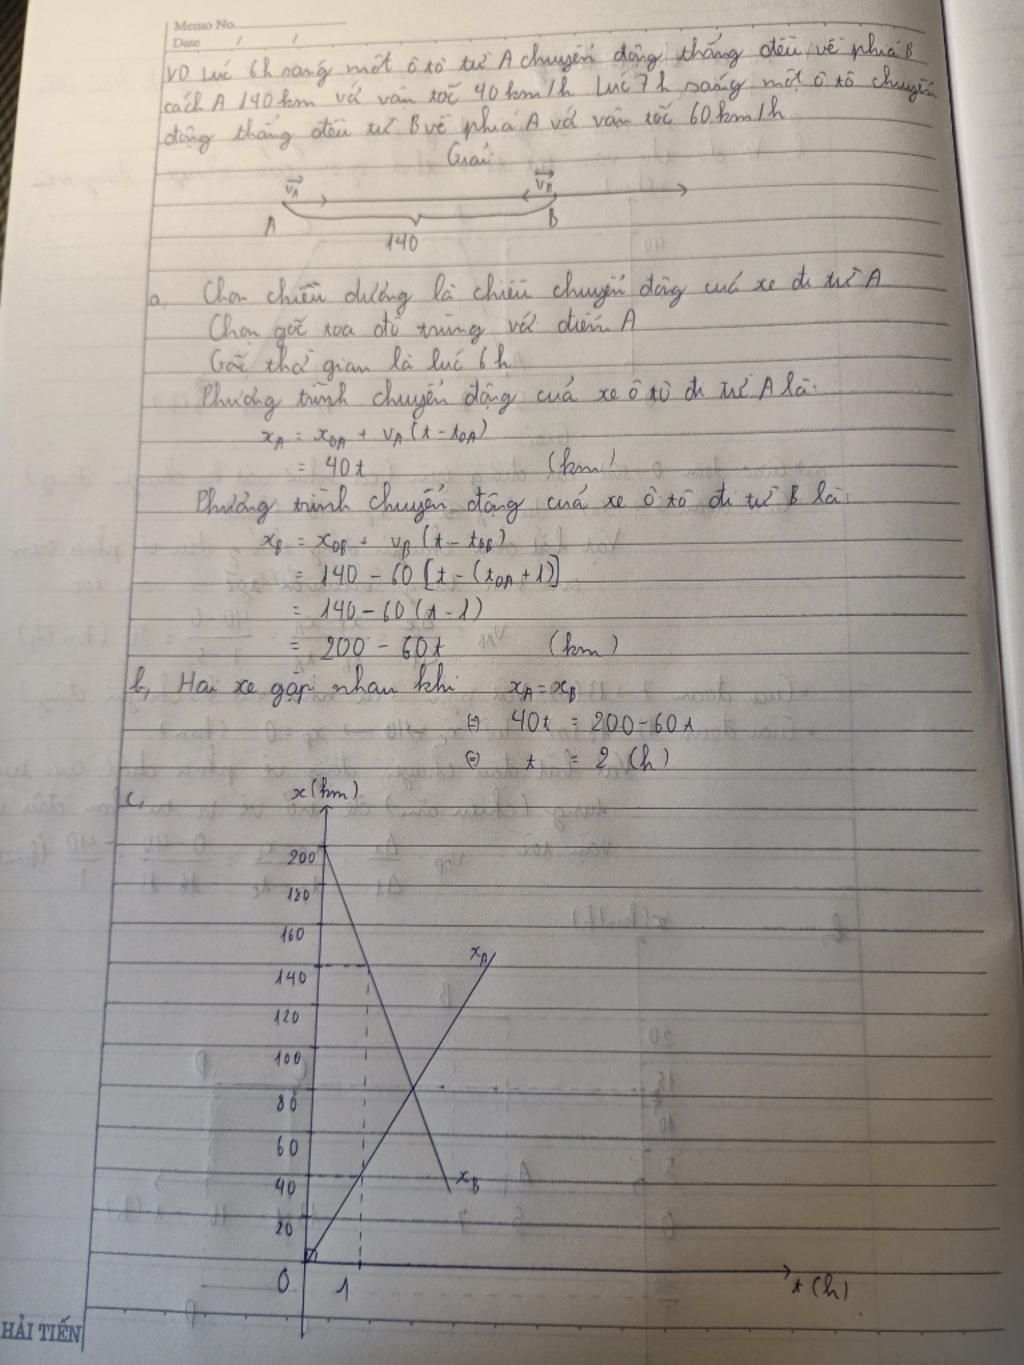 Memo No.
Date / /
VD Lúc 6h sáng một ô tô từ A chuyển động thẳng đều về phía B
cách A 140km với vận tốc 40km/h Lúc 7h sáng một ô tô chuyển
động thẳng đều từ B về phía A với vận tốc 60km/h
Giải
vA vB
A B
140
a, Chọn chiều dương là chiều chuyển động của xe đi từ A
Chọn gốc toạ độ trùng với điểm A
Gốc thời gian là lúc 6h
Phương trình chuyển động của xe ô tô đi từ A là:
xA = x0A + vA (t - t0A)
= 40t (km)
Phương trình chuyển động của xe ô tô đi từ B là:
xB = x0B + vB (t - t0B)
= 140 - 60 [t - (t0A + 1)]
= 140 - 60 (t - 1)
= 200 - 60t (km)
b, Hai xe gặp nhau khi xA = xB
⇔ 40t = 200 - 60t
⇔ t = 2 (h)
c, x (km)
200
180
160
xA
140
120
100
80
60
40 xB
20
0 1 t (h)
HẢI TIẾN